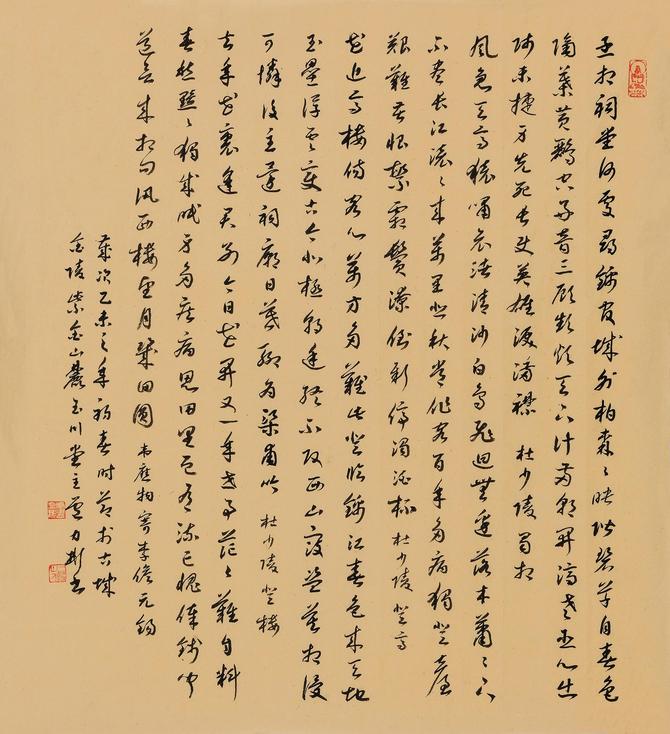 丞相祠堂何處尋錦官城外柏森々映階碧草自春色
隔葉黄鸝空好音三顧頻煩天下計兩朝開濟老臣心出
師未捷身先死長使英雄淚滿襟 杜少陵蜀相
風急天高猿嘯哀渚清沙白鳥飛迴無邊落木蕭々下
不盡長江滾々來萬里悲秋常作客百年多病獨登臺
艱難苦恨繁霜鬢潦倒新停濁酒杯 杜少陵登高
花近高樓傷客心萬方多難此登臨錦江春色來天地
玉壘浮雲變古今北極朝廷終不改西山寇盜莫相侵
可憐後主還祠廟日暮聊為梁甫吟 杜少陵登樓
去年花裏逢君別今日花開又一年世事茫々難自料
春愁黯々獨成眠身多疾病思田里邑有流亡愧俸錢聞
道欲來相問訊西樓望月幾回圓 韋應物寄李儋元錫
歲次乙未之年初春時節於古城
金陵紫金山麓玉川堂主 力彬書